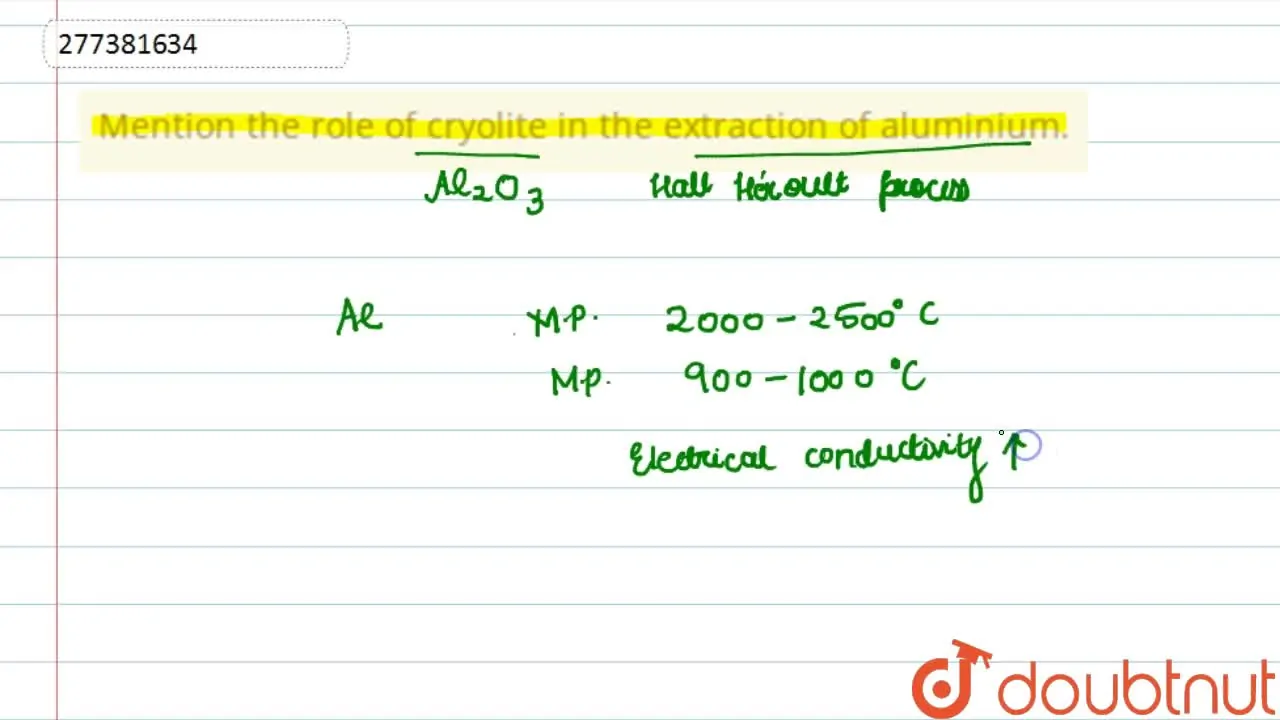 277381634
Mention the role of cryolite in the extraction of aluminium.
Al2O3 Hall Héroult process
Al M.P. 2000 - 2500°C
M.P. 900 - 1000 °C
Electrical conductivity ↑
doubtnut